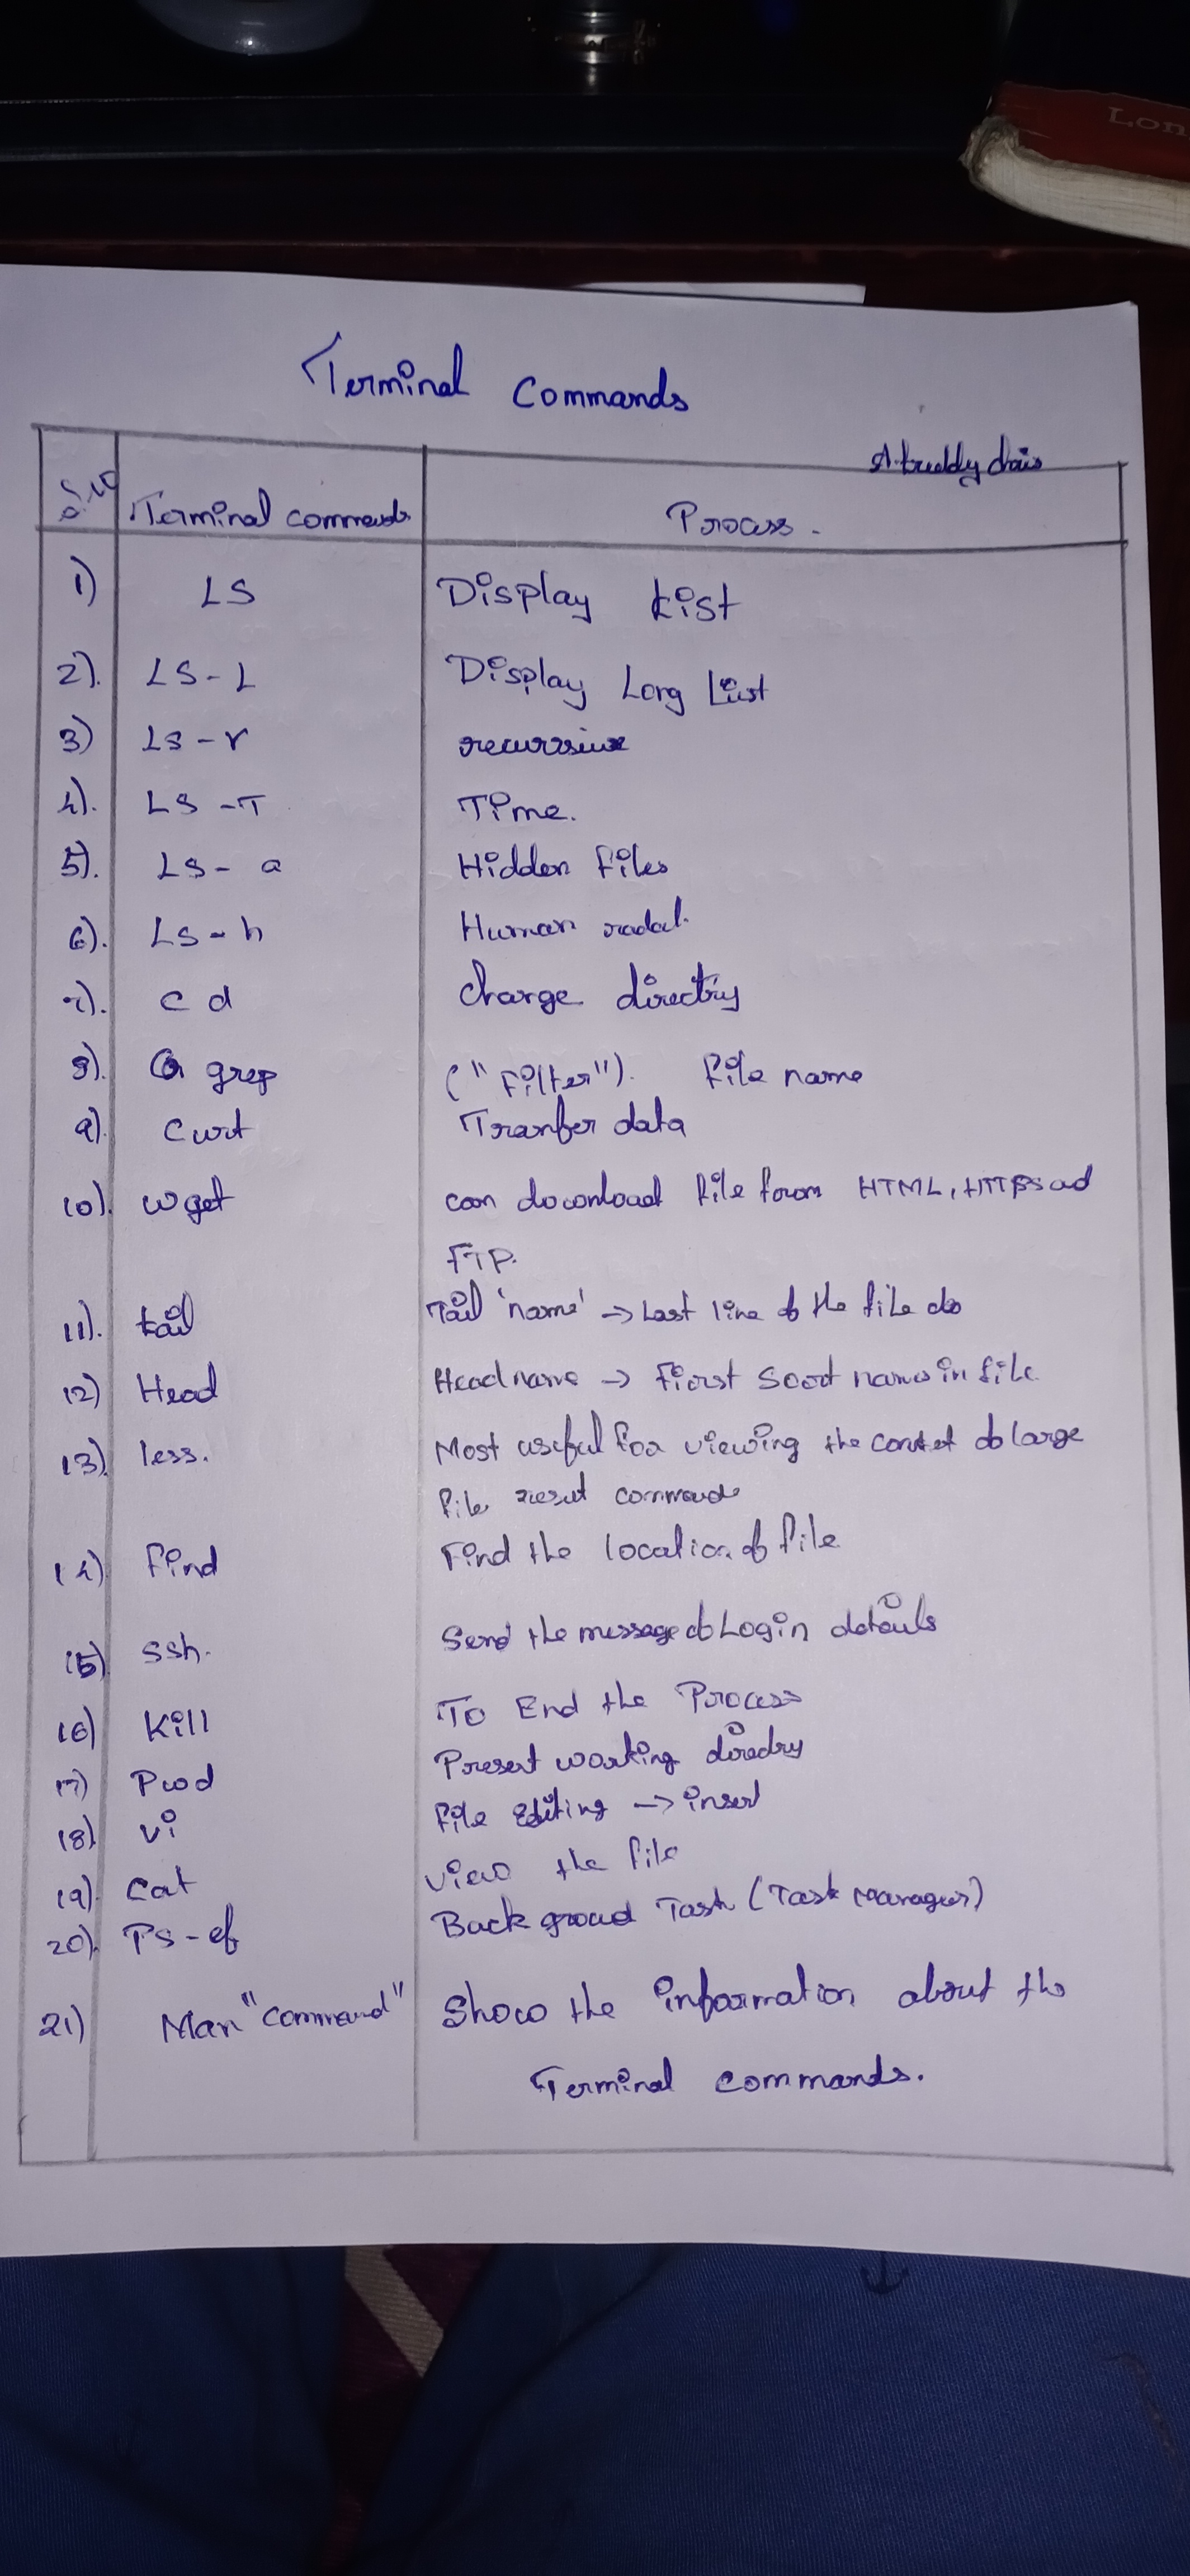 Lon
Terminal Commands
S.No Terminal commands Process.
1) LS Display List
2). LS-L Display Long List
3) LS-r recurrsive
4). LS-T Time.
5). LS-a Hidden files
6). LS-h Human
7). cd change directry
8). grep ("Filter"). file name
9). Curl Tranfer data
10). wget can download file from HTML, HTTPS ad
FTP.
11). tail Tail 'name' -> Last line of the file
12) Head Head name -> First name in file
13) less. Most useful for viewing the of large
file
14) find Find the location of file
15) ssh. Send the message Login details
16) Kill To End the Process
17) Pwd Present working directry
18) vi file Editing -> insert
19) Cat view the file
20). PS-ef Back groud Task (Task Manager)
21) Man "command" Show the information about the
Terminal commands.